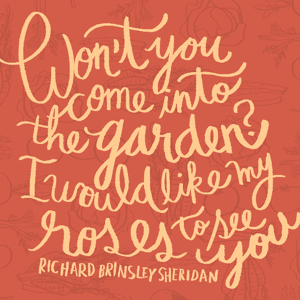 Won't you
come into
the garden?
I would like my
roses to see
you
RICHARD BRINSLEY SHERIDAN